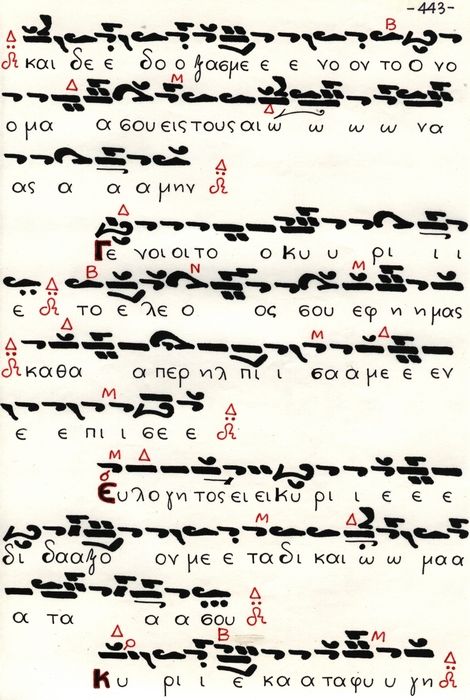 -443-
και δε ε δο ο ξασμε ε ε νο ον το ο νο
ο μα α σου εις τους αι ω ω ω ω να
ας α α α μην
Γε νοι οι το ο κυ υ ρι ι ι
ε το ε λε ο ος σου εφ η η μας
καθα α περ ηλ πι ι σα α με ε εν
ε ε πι ι σε ε
Ευλογητος ει ει κυ ρι ι ε ε ε
δι δα αξο ον με ε τα δι και ω ω μα α
α τα α α σου
Κυ ρι ι ε κα α ταφυ υ γη